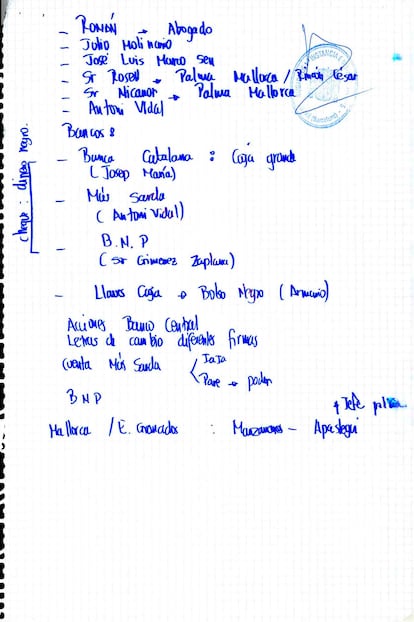 - ROMÁN → Abogado
- Julio Molinario
- José Luis Marco Seu
- Sr Rosell → Palma Mallorca / Simón César
- Sr Nicanor → Palma Mallorca
- Antoni Vidal
Bancos:
- Banca Catalana : Caja grande
( Josep María)
- Más Sarda
( Antoni Vidal)
- B.N.P
( Sr Gimenez Zaplana)
cheque : dinero negro.
- Llaves Caja → Bolso Negro ( Armario)
Acciones Banco Central
Letras de cambio diferentes firmas
cuenta Más Sarda
Pare → poder
BNP
Mallorca / E. Granados : Manzanares - Apastegui